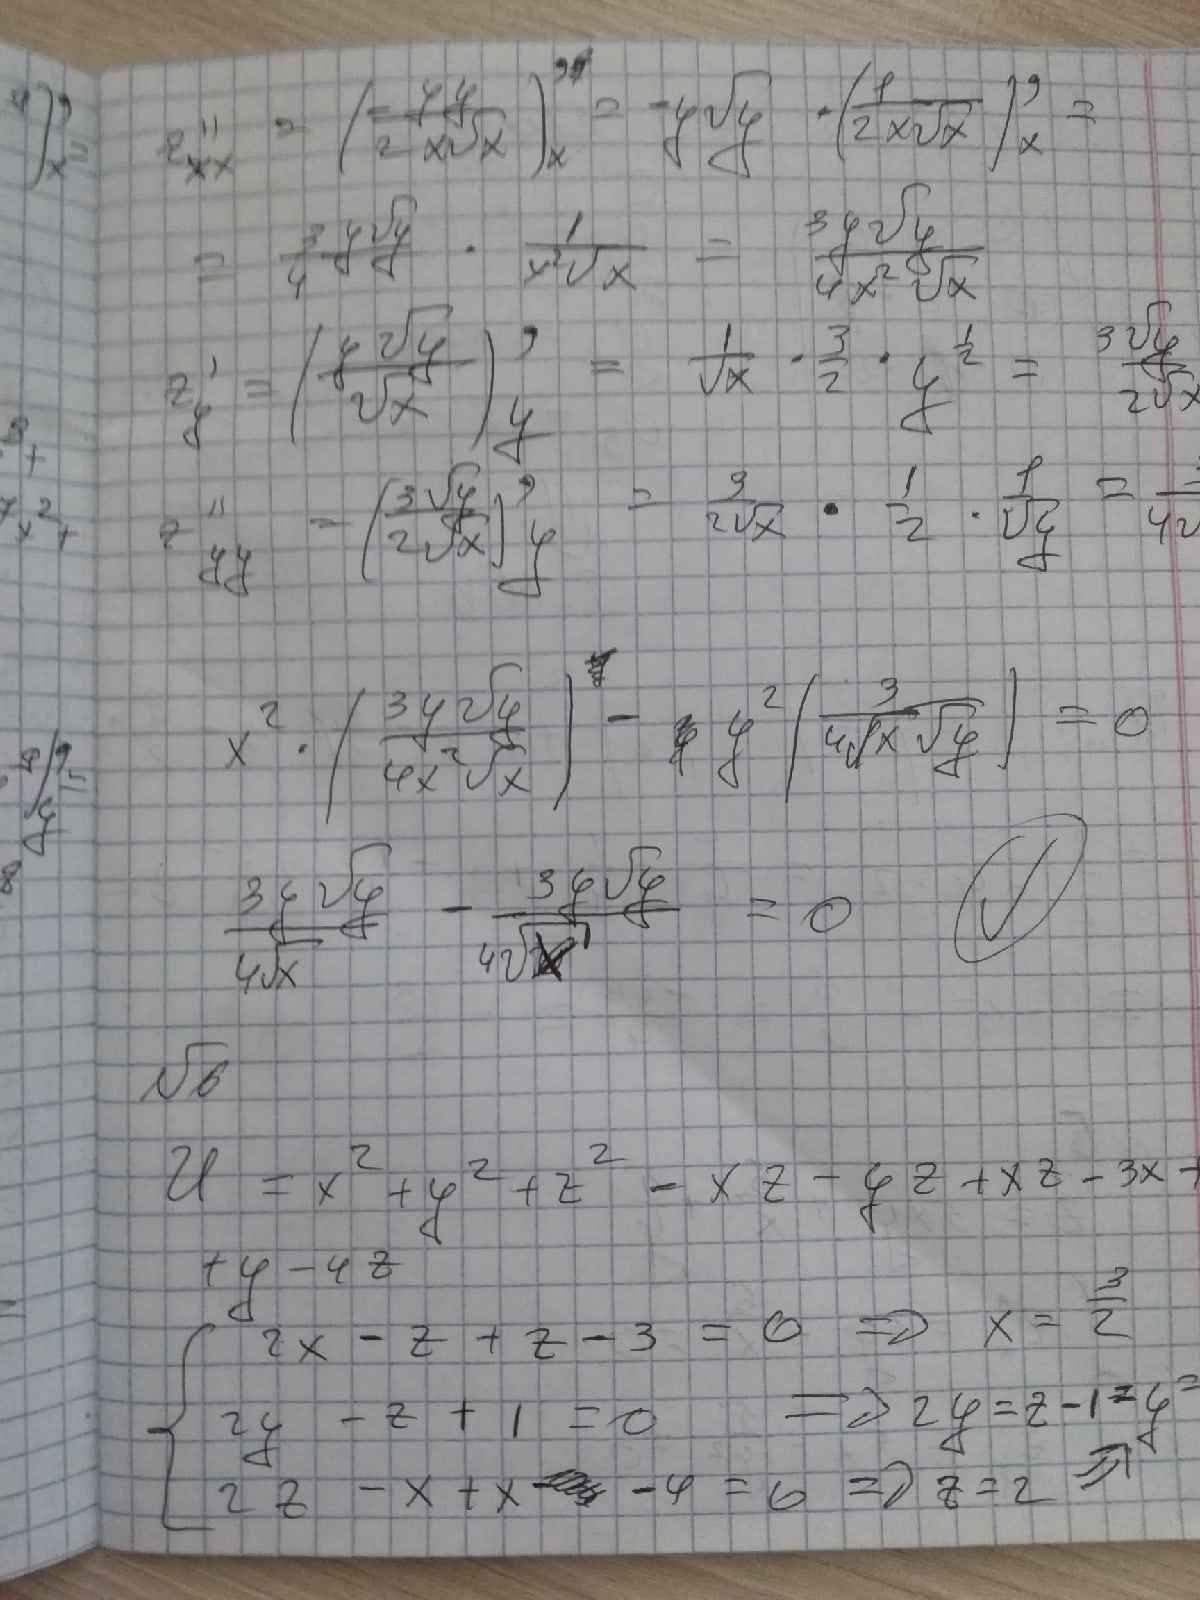 z''xx = (-y√y / 2x√x)'x = -y√y · (1 / 2x√x)'x =
= 3/4 y√y · 1 / x²√x = 3y√y / 4x²√x
z'y = (y√y / √x)'y = 1/√x · 3/2 · y^1/2 = 3√y / 2√x
z''yy = (3√y / 2√x)'y = 3 / 2√x · 1/2 · 1/√y =
x² · (3y√y / 4x²√x) - y² (3 / 4√x√y) = 0
3y√y / 4√x - 3y√y / 4√x = 0 ✓
№6
U = x² + y² + z² - xz - yz + xz - 3x +
+ y - 4z
2x - z + z - 3 = 0 => x = 3/2
2y - z + 1 = 0 => 2y = z - 1 = y =
2z - x + x - 4 = 0 => z = 2 =>